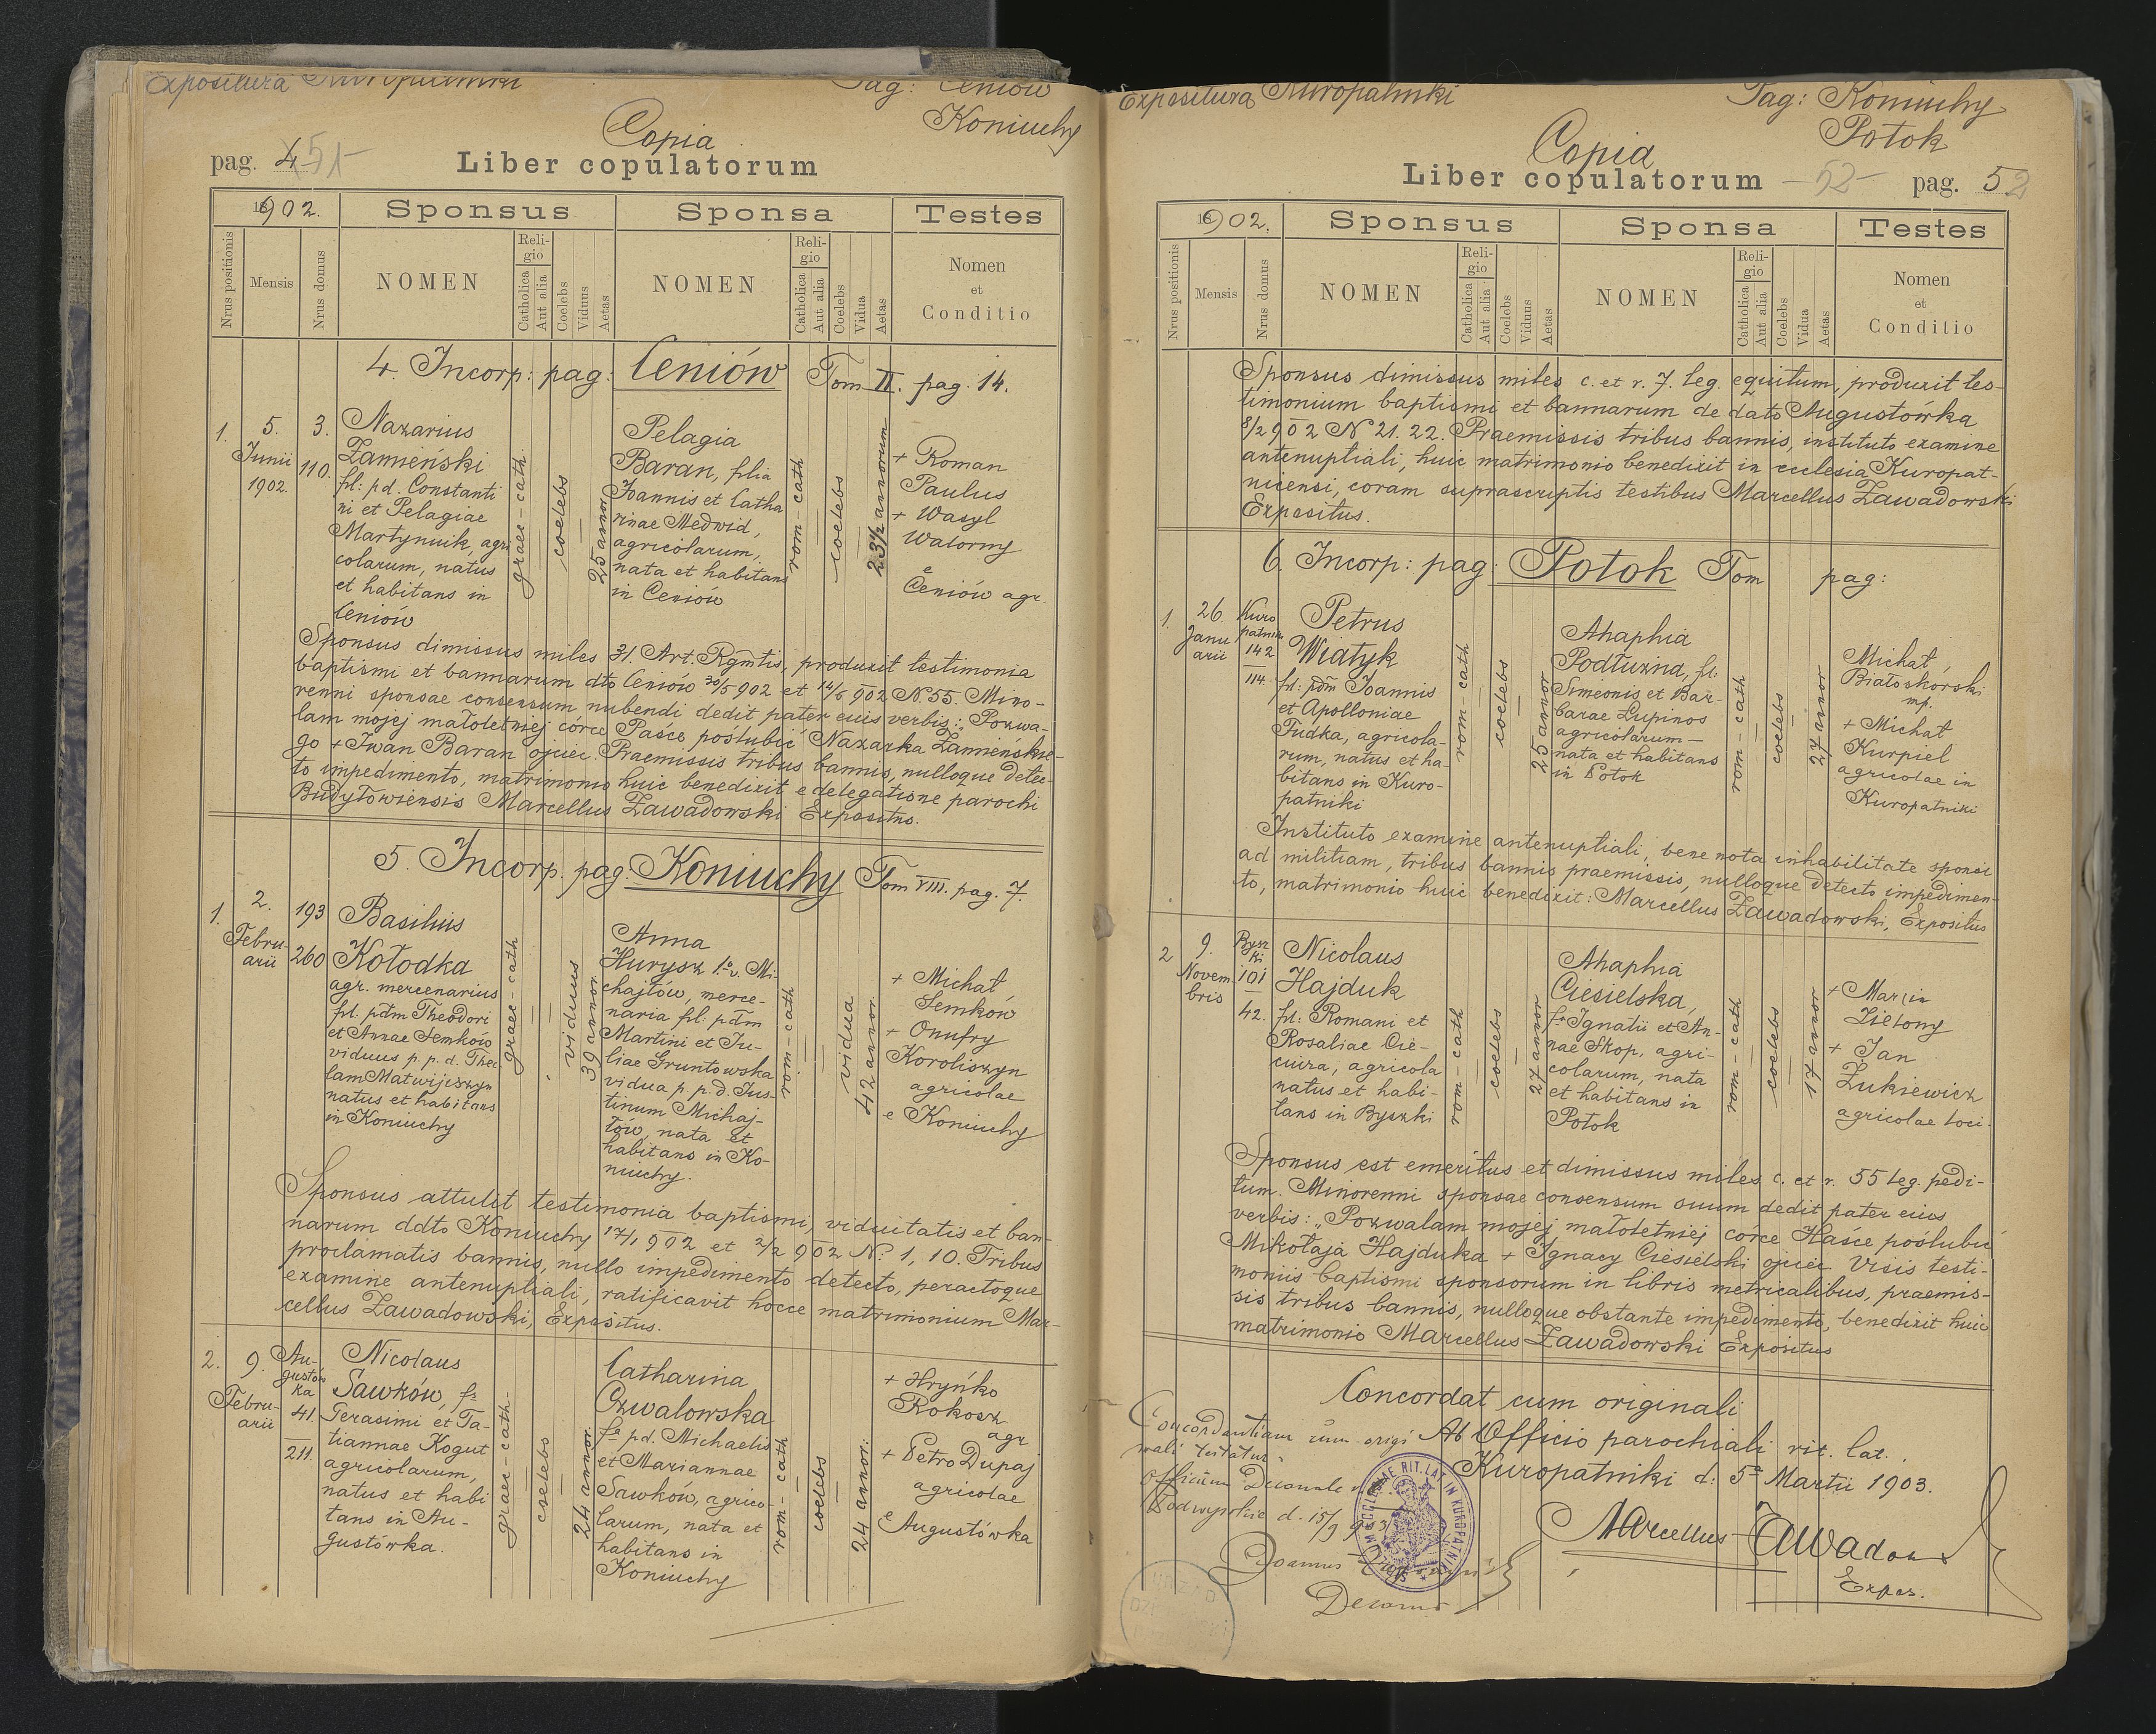 Expositura Kuropatniki
Pag: Ceniów
Koniuchy
Copia
pag. 4 51
Liber copulatorum
1902.
Sponsus
Sponsa
Testes
Nrus positionis
Mensis
Nrus domus
NOMEN
Religio
Catholica
Aut alia
Coelebs
Viduus
Aetas
NOMEN
Religio
Catholica
Aut alia
Coelebs
Vidua
Aetas
Nomen
et
Conditio
4. Incorp: pag: Ceniów Tom II. pag. 14.
1.
5.
Junii
1902.
3.
110.
Nazarius
Zamieński
fil: pd. Constanti
ni et Pelagiae
Martynuik, agri
colarum, natus
et habitans in
Ceniów
graec-cath.
coelebs
25 annor
Pelagia
Baran, filia
Joannis et Catha
rinae Medwid,
agricolarum,
nata et habitans
in Ceniów
rom-cath
coelebs
23½ annorum
+ Roman
Paulus
+ Wasyl
Watorny
e
Ceniów agr.
Sponsus dimissus miles 31. Art. Rgmtis, produxit testimonia
baptismi et bannarum dto Ceniów 30/5 902 et 14/6 902 N. 55. Mino-
renni sponsae consensum nubendi dedit pater eius verbis: „Pozwa-
lam mojej małoletniej córce Paśce poslubić Nazarka Zamieńskie-
go + Iwan Baran ojciec. Praemissis tribus bannis, nulloque detec-
to impedimento, matrimonio huic benedixit e delegatione parochi
Budyłowiensis Marcellus Zawadowski Expositus.
5. Incorp. pag. Koniuchy Tom VIII. pag. 7.
1.
2.
Febru-
arii
193
260
Basilius
Kołodka
agr. mercenarius
fil: pdm Theodori
et Annae Semków
viduus p. p. d. Thec
lam Matwijiszyn
natus et habitans
in Koniuchy
graec-cath
viduus
39 annor
Anna
Hurysz 1o v. Mi-
chajłów, merce-
naria fil: pdm
Martini et Ju-
liae Gruntowska
vidua p. p. d. Jus-
tinum Michaj-
łow, nata et
habitans in Ko-
niuchy.
rom-cath
vidua
42 annor.
+ Michał
Semków
+ Onufry
Koroliszyn
agricolae
e Koniuchy
Sponsus attulit testimonia baptismi, viduitatis et ban-
narum ddto Koniuchy 17/1 902 et 2/2 902 No. 1, 10. Tribus
proclamatis bannis, nullo impedimento detecto, peractoque
examine antenuptiali, ratificavit hocce matrimonium Mar-
cellus Zawadowski, Expositus.
2.
9.
Febru-
arii
Au-
gustów
ka
41.
211.
Nicolaus
Sawków, fs
Gerasimi et Ta-
tiannae Kogut
agricolarum,
natus et habi
tans in Au-
gustówka.
graec-cath-
coelebs
24 annor.
Catharina
Czwalowska
fa pd. Michaelis
et Mariannae
Sawków, agrico-
larum, nata et
habitans in
Koniuchy
rom-cath
coelebs
24 annor:
+ Hryńko
Rokosz
agr
+ Petro Dupaj
agricolae
e Augustówka
Expositura Kuropatniki
Pag: Koniuchy
Potok
Copia
Liber copulatorum
-52-
pag. 52
1902.
Sponsus
Sponsa
Testes
Nrus positionis
Mensis
Nrus domus
NOMEN
Religio
Catholica
Aut alia
Coelebs
Viduus
Aetas
NOMEN
Religio
Catholica
Aut alia
Coelebs
Vidua
Aetas
Nomen
et
Conditio
Sponsus dimissus miles c. et r. 7. leg. equitum, produxit tes-
timonium baptismi et bannarum de dato Augustówka
8/2 902 N 21. 22. Praemissis tribus bannis, instituto examine
antenuptiali, huic matrimonio benedixit in ecclesia Kuropat-
nicensi, coram suprascriptis testibus Marcellus Zawadowski
Expositus.
6. Incorp: pag: Potok Tom pag:
1.
26.
Janu
arii
Kuro
patniki
142
114.
Petrus
Wiatyk
fil: pdm Joannis
et Apolloniae
Fudka, agricola-
rum, natus et ha-
bitans in Kuro-
patniki
rom-cath
coelebs
25 annor
Ahaphia
Podłużna, fil.
Simeonis et Bar-
barae Łupinos
agricolarum-
nata et habitans
in Potok
rom-cath
coelebs
27 annor
Michał
Białoskórski
mp.
+ Michał
Kurpiel
agricolae in
Kuropatniki
Instituto examine antenuptiali, bene nota inhabilitate sponsi
ad militiam, tribus bannis praemissis, nulloque detecto impedimen-
to, matrimonio huic benedixit: Marcellus Zawadowski, Expositus
2
9.
Novem
bris
Bysz
ki
101
42.
Nicolaus
Hajduk
fil: Romani et
Rosaliae Cie-
cuira, agricola
natus et habi-
tans in Byszki
rom-cath
coelebs
27 annor
Ahaphia
Ciesielska,
fa Ignatii et An-
nae Skop, agri-
colarum, nata
et habitans in
Potok
rom-cath
coelebs
17 annor
+ Marcin
Zielony
+ Jan
Żukiewicz
agricolae loci.
Sponsus est emeritus et dimissus miles c. et r. 55 leg. pedi-
tum. Minorenni sponsae consensum suum dedit pater eius
verbis: „Pozwalam mojej małoletniej córce Haśce poślubić
Mikołaja Hajduka + Ignacy Ciesielski ojciec. Visis testi-
moniis baptismi sponsorum in libris metricalibus, praemis-
sis tribus bannis, nulloque obstante impedimento, benedixit huic
matrimonio Marcellus Zawadowski Expositus
Concordat cum originali
Ab Officio parochiali rit. lat.
Kuropatniki d: 5a Martii 1903.
Marcellus Zawadow
Expos.
Concordantiam cum origi
nali testatur
Officium Decanale
d. 15/3 903
Decanus
SIGILLUM ECCLESIAE RIT. LAT. IN KUROPATNIKI